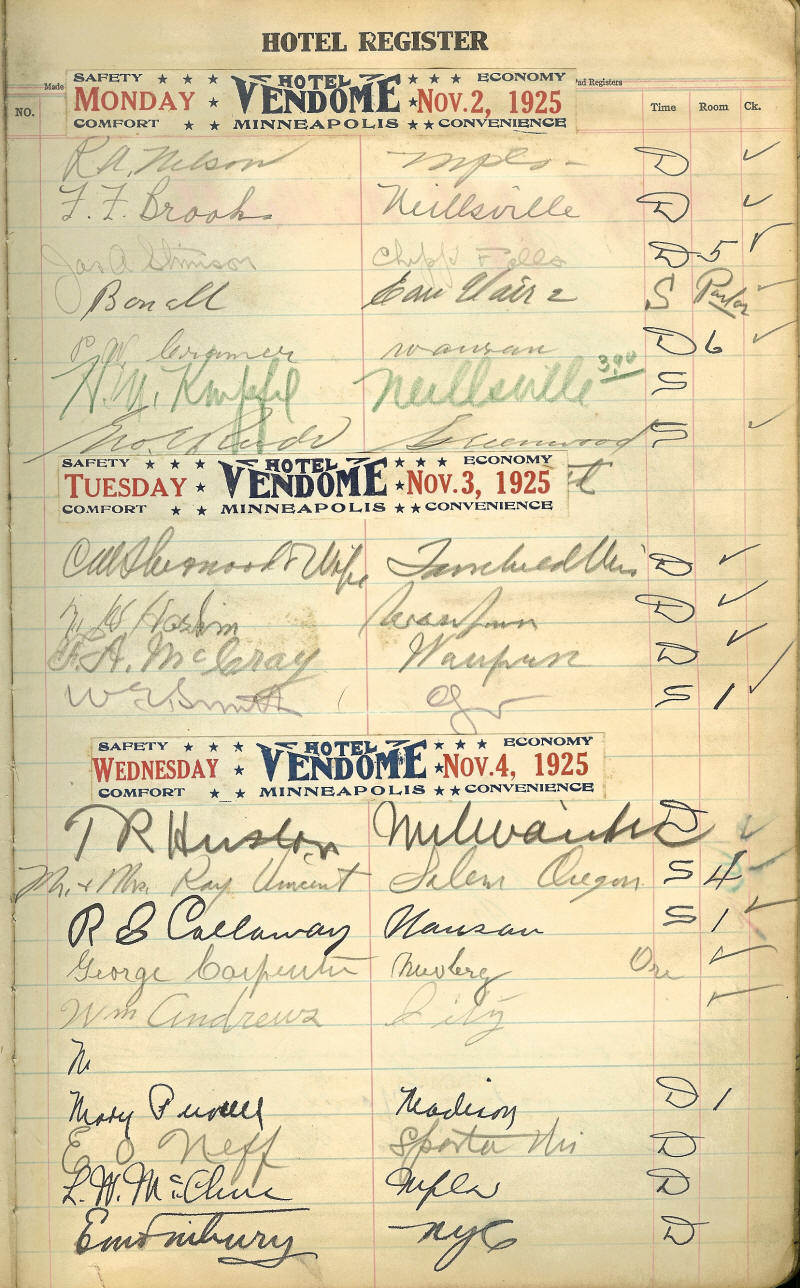 HOTEL REGISTER
Made
Pad Registers
NO. Time Room Ck.
SAFETY HOTEL ECONOMY
MONDAY VENDOME NOV. 2, 1925
COMFORT MINNEAPOLIS CONVENIENCE
R A. Nelson Mpls - D ✓
F. F. Brooks Neillsville D ✓
Jas A Stimson Chipp Falls D 5 ✓
Eau Claire S Parlor
P. W. Cramer Wausau D 6 ✓
H. M. Neillsville 3.00 S
Geo. Greenwood S ✓
SAFETY HOTEL ECONOMY
TUESDAY VENDOME NOV. 3, 1925
COMFORT MINNEAPOLIS CONVENIENCE
Sherwood & Wife Wis D ✓
D ✓
F. A. McCray Waupun D ✓
W E Smith S 1 ✓
SAFETY HOTEL ECONOMY
WEDNESDAY VENDOME NOV. 4, 1925
COMFORT MINNEAPOLIS CONVENIENCE
T R Huston Milwaukee D ✓
Mr. + Mrs. Ray Vincent Salem Oregon S 4 ✓
R E Callaway Wausau S 1 ✓
George Carpenter Newberg Ore ✓
Wm Andrews City ✓
Mary Madison D 1
E O Neff Sparta Wis D
L. W. McClure Mpls D
NYC D